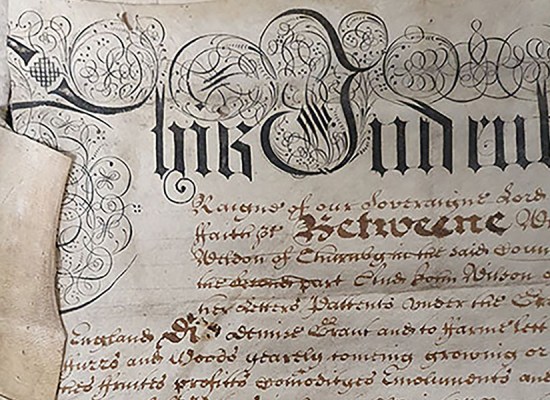 This Indentu
Raigne of our Soveraigne Lord
Faith &c Betweene Wi
Weldon of in the said Coun
the second part And John Wilson
Letters Pattents under the Gr
England Did demise Grant and to Farme lett
Furrs and Woods yearely comeing growing or
Fruites profitts Comodityes Emoluments and